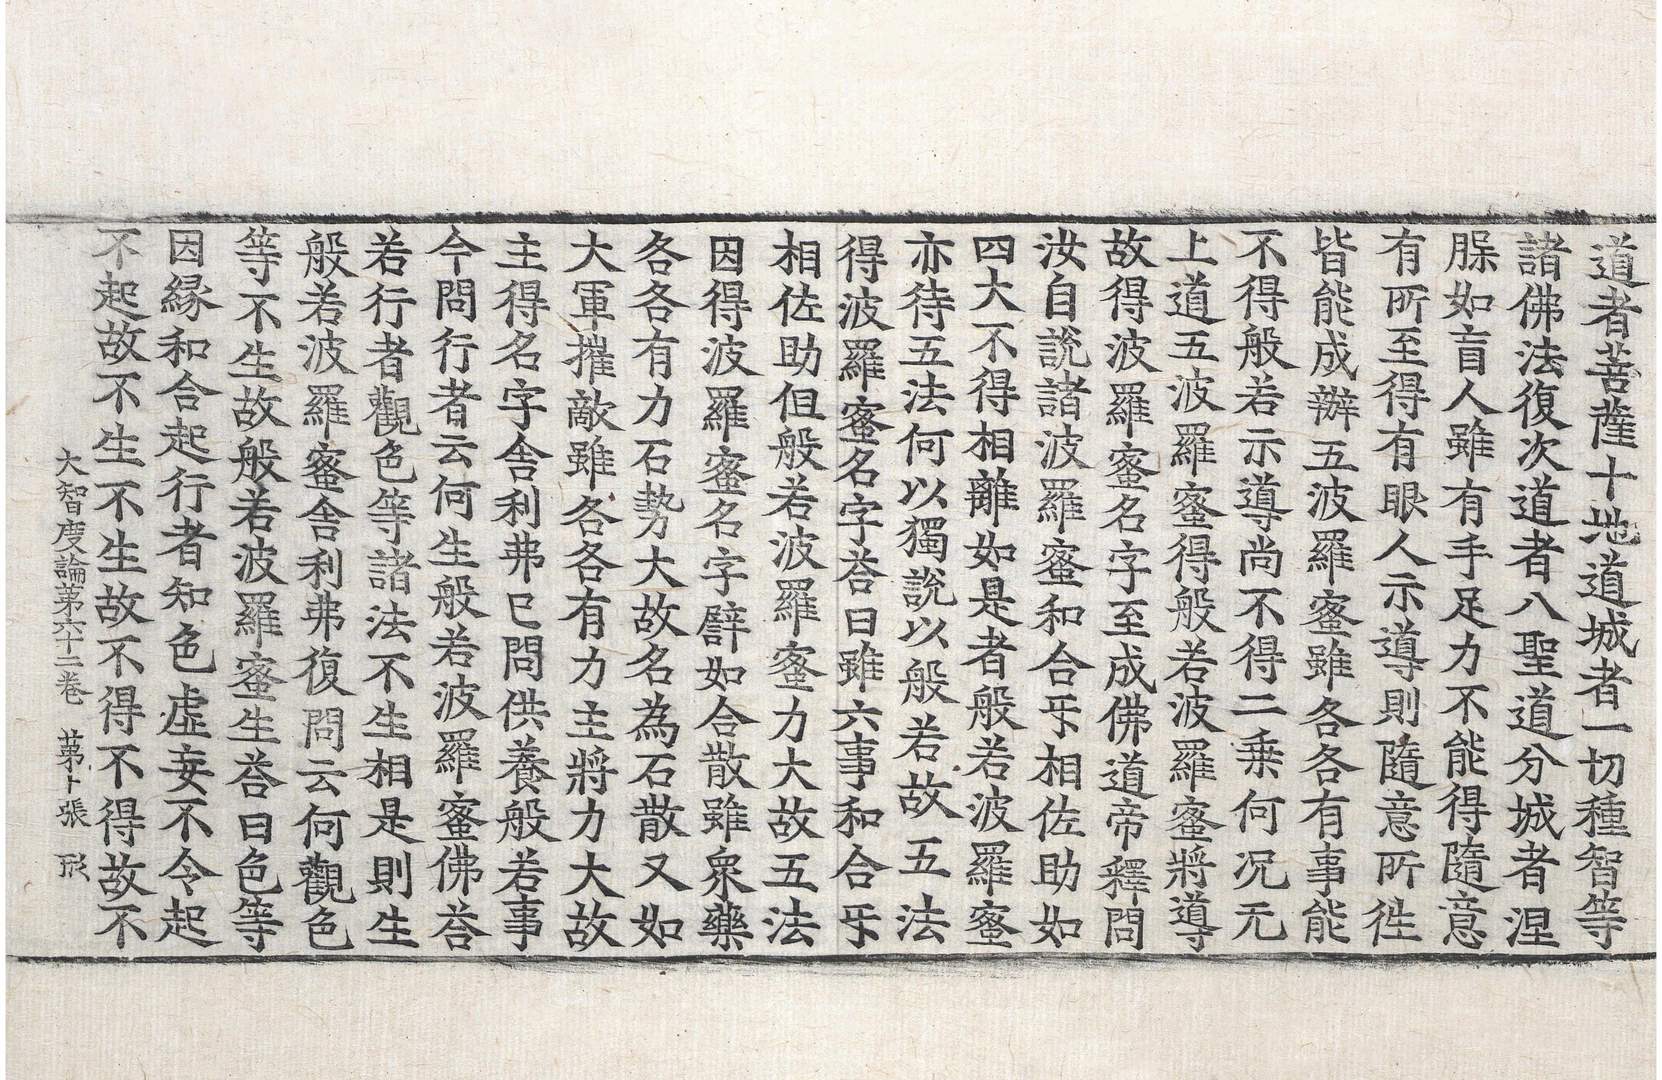 道者菩薩十地道城者一切種智等
諸佛法復次道者八聖道分城者涅
脲如盲人雖有手足力不能得隨意
有所至得有眼人示導則隨意所徃
皆能成辦五波羅蜜雖各各有事能
不得般若示導尚不得二乗何况无
上道五波羅蜜得般若波羅蜜將導
故得波羅蜜名字至成佛道帝釋問
汝自說諸波羅蜜和合㸦相佐助如
四大不得相離如是者般若波羅蜜
亦待五法何以獨說以般若故五法
得波羅蜜名字荅曰雖六事和合㸦
相佐助但般若波羅蜜力大故五法
因得波羅蜜名字譬如合散雖衆藥
各各有力石勢大故名為石散又如
大軍摧敵雖各各有力主將力大故
主得名字舎利弗已問供養般若事
今問行者云何生般若波羅蜜佛荅
若行者觀色等諸法不生相是則生
般若波羅蜜舎利弗復問云何觀色
等不生故般若波羅蜜生荅曰色等
因緣和合起行者知色虛妄不令起
不起故不生不生故不得不得故不
大智度論第六十二卷　第十張　形